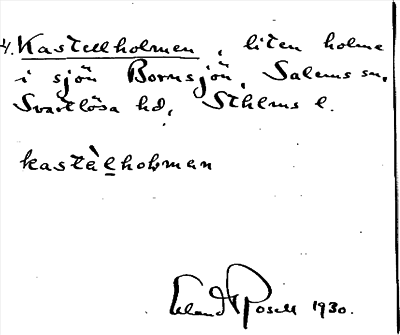 4. Kastellholmen, liten holme
i sjön Bornsjön, Salems sn,
Svartlösa hd, Sthlms l.
kastàlholmən
Erland Rosell 1930.